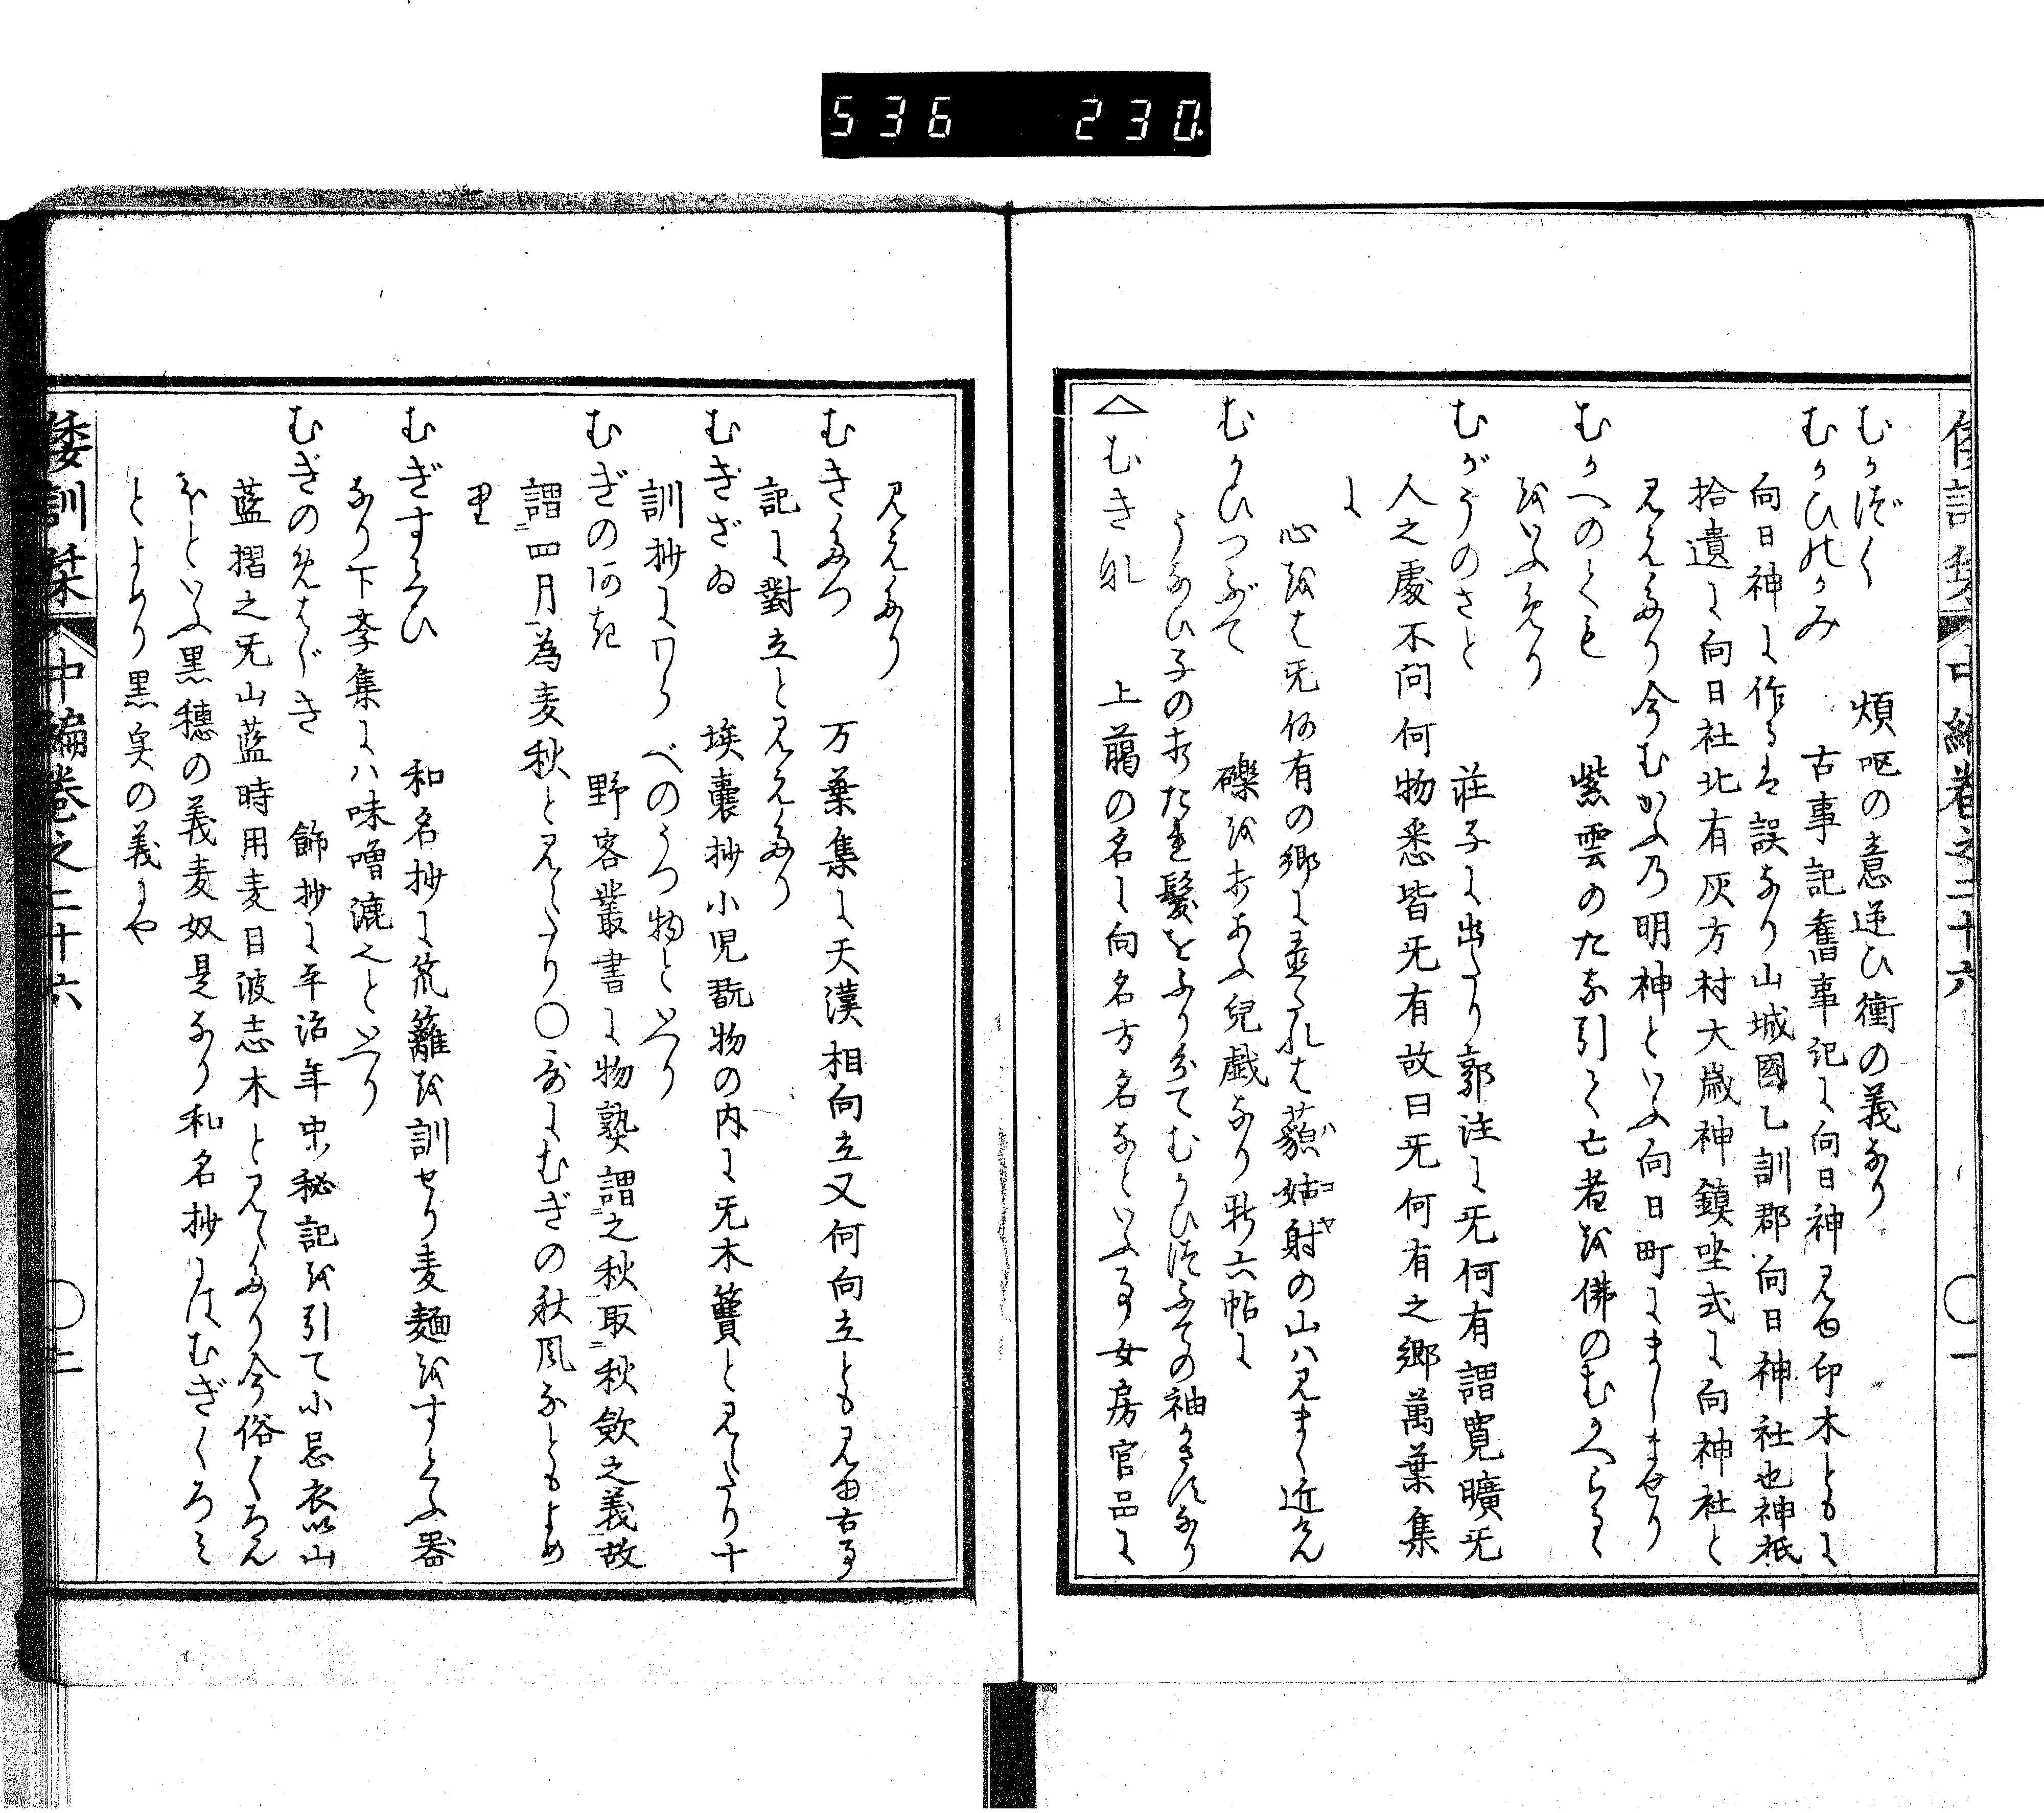 536 230
倭訓栞 中編巻之二十六 〇一
むかづく 煩呕の意逆ひ衝の義なり
むかひのかみ 古事記舊事記に向日神見ゆ印木ともに
向日神に作るは誤なり山城國乙訓郡向日神社也神祇
拾遺に向日社北有灰方村大歳神鎮坐式に向神社と
見えたり今むかふ乃明神といふ向日町にましませり
むかへのくも 紫雲のたな引て亡者を佛のむかへらるゝ
をいふめり
むがうのさと 荘子に出たり郭注に无何有謂寛曠无
人之處不問何物悉皆无有故曰无何有之郷萬葉集
に
心をは无何有の郷に置たれは藐姑射の山ハ見まく近けん
ハコヤ
むかひつぶて 礫を打あふ兒戯なり新六帖に
うなひ子の打たれ髪をふりかけてむかひつふての袖かさすなり
△むき名 上臈の名に向名方名なといふ事女房官品に
見えたり
むきたつ 万葉集に天漢相向立又何向立とも見ゆ古事
記に對立と見えたり
むぎざゐ 埃嚢抄小児翫物の内に无木簺と見へたり十
訓抄にわりべのうつ物といへり
むぎのあき 野客叢書に物熟謂之秋取秋斂之義故
謂四月為麦秋と見へたり〇歌にむぎの秋風なともよめ
り
むぎすくひ 和名抄に笊籬を訓せり麦麺をすくふ器
なり下学集にハ味噌漉之といへり
むぎのめはじき 飾抄に平治年中秘記を引て小忌衣以山
藍摺之无山藍時用麦目波志木と見えたり今俗くろん
ほといふ黒穂の義麦奴是なり和名抄にはむぎくろミ
とよめり黒実の義にや
倭訓栞 中編巻之二十六 〇二